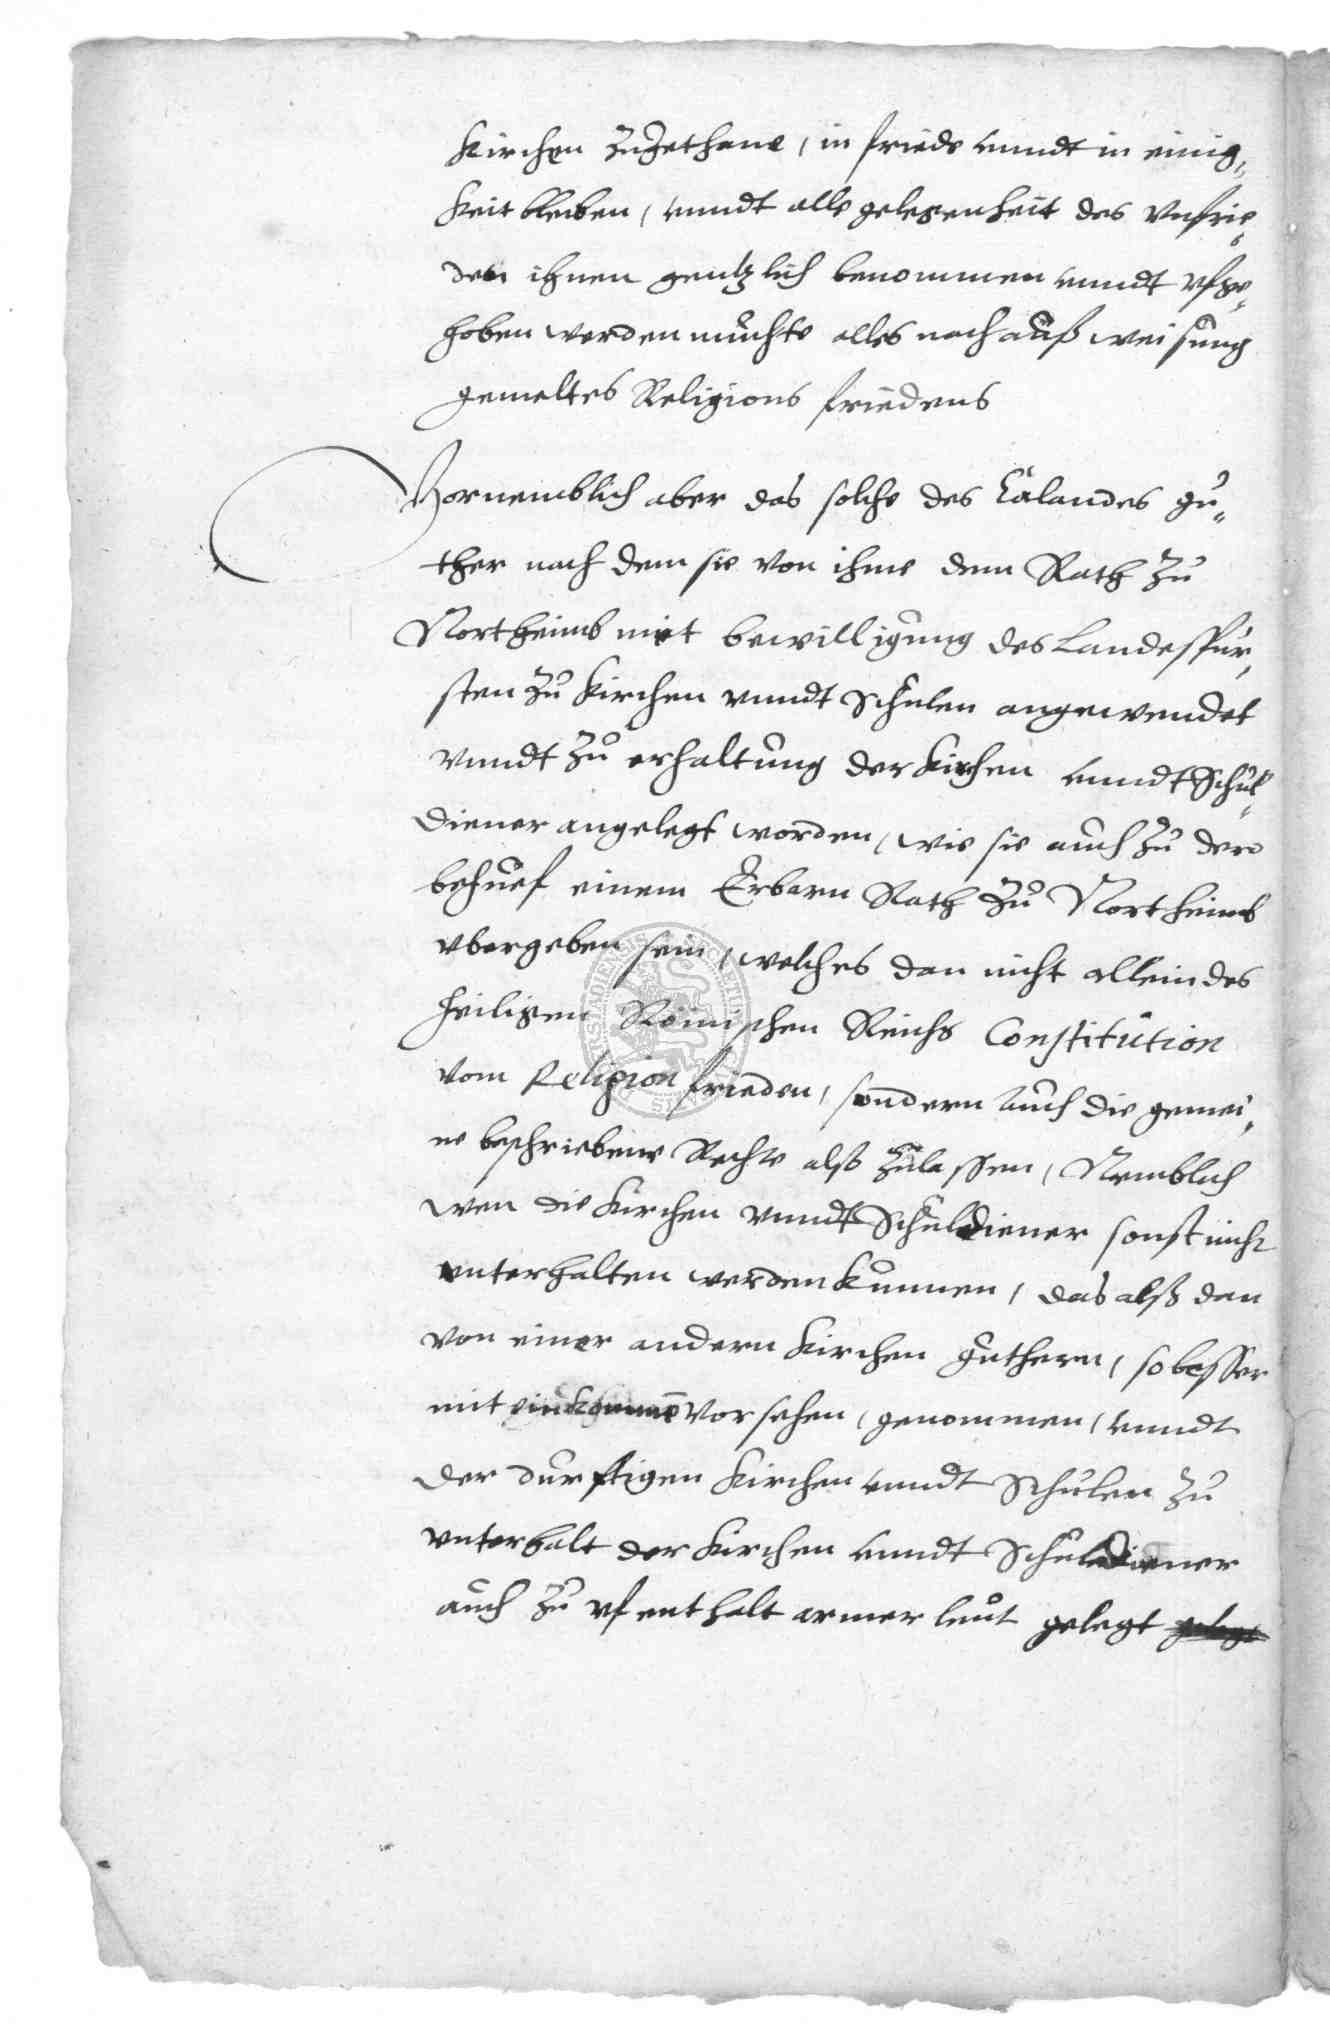 Kirchen zugethane, in friede vnndt in einig„
keit bleiben, vnndt alle gelegenheit des vnfrie„
den ihnen gentzlich benommen vnndt vfge„
hoben werden muchte alles nach außweisung
gemeltes Religions friedens
Vornemblich aber das solche des Calandes gu„
ther nach dem sie von ihme dem Rath zu
Northeimb mit bewilligung des Landesfur„
sten zu Kirchen vnndt Schulen angewendet
vnndt zu erhaltung der Kirchen vnndt Schul„
diener angelegt worden, wie sie auch zu dero
behuef einem Erbarn Rath zu Northeimb
vbergeben sein, welches dan nicht allein des
heiligen Römischen Reichs Constitution
vom Religion frieden, sondern auch die gemei„
ne beschriebene Rechte alß zulassen, Nemblich
wen die Kirchen vnndt Schuldiener sonst nicht
vnterhalten werden kunnen, das alß dan
von einer andern Kirchen guthern, so besser
mit einkommen vorsehen, genommen, vnndt
der durftigen Kirchen vnndt Schulen zu
vnterhalt der Kirchen vnndt Schuldiener
auch zu vfenthalt armer leut gelegt gelegt